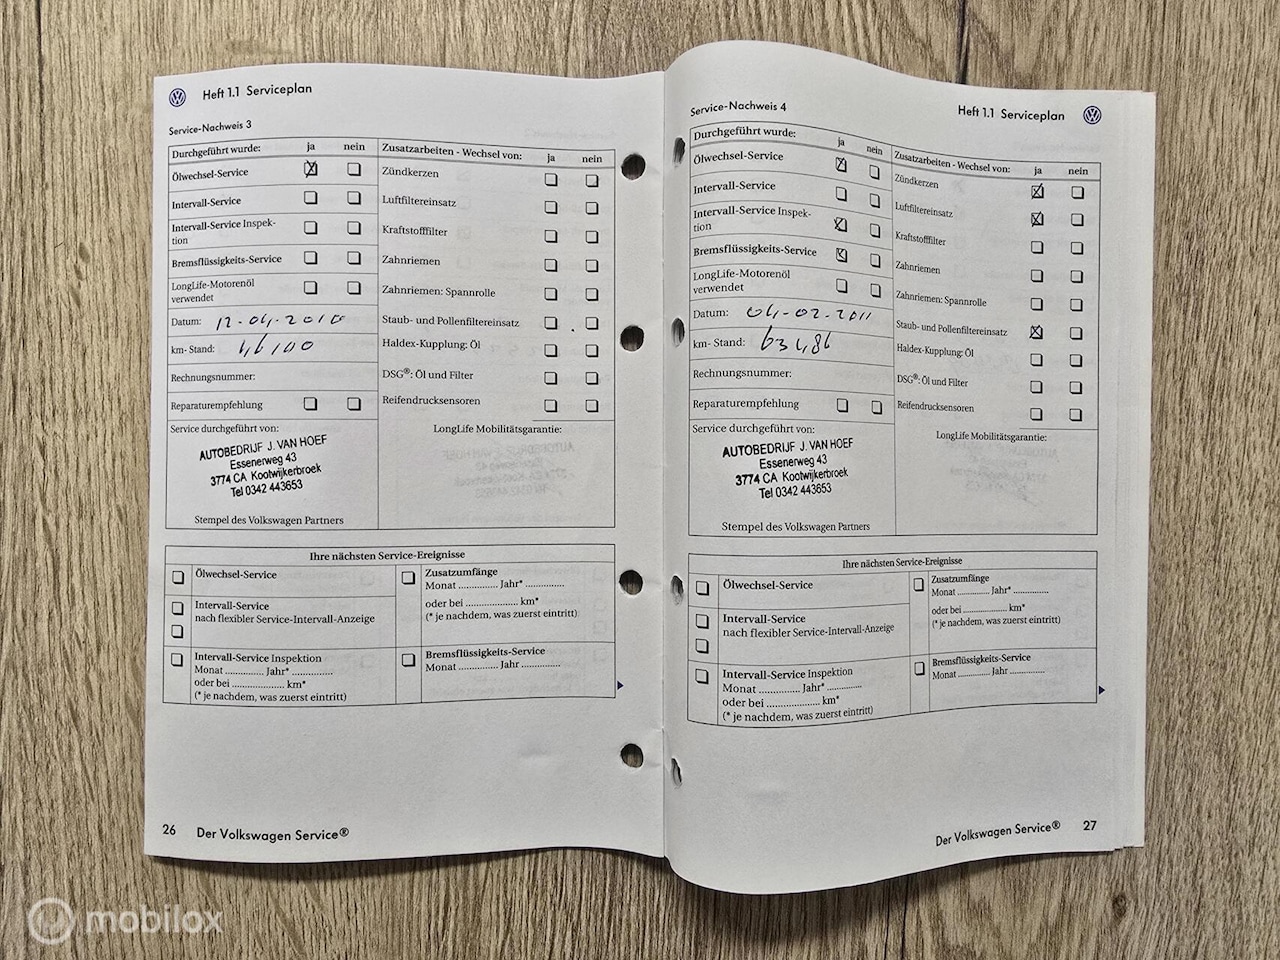 Heft 1.1 Serviceplan
Service-Nachweis 3
Durchgeführt wurde: ja nein
Ölwechsel-Service
Intervall-Service
Intervall-Service Inspek-
tion
Bremsflüssigkeits-Service
LongLife-Motorenöl
verwendet
Datum: 12-04-2010
km- Stand: 46100
Rechnungsnummer:
Reparaturempfehlung
Service durchgeführt von:
AUTOBEDRIJF J. VAN HOEF
Essenerweg 43
3774 CA Kootwijkerbroek
Tel 0342 443653
Stempel des Volkswagen Partners
Zusatzarbeiten - Wechsel von: ja nein
Zündkerzen
Luftfiltereinsatz
Kraftstofffilter
Zahnriemen
Zahnriemen: Spannrolle
Staub- und Pollenfiltereinsatz
Haldex-Kupplung: Öl
DSG®: Öl und Filter
Reifendrucksensoren
LongLife Mobilitätsgarantie:
Ihre nächsten Service-Ereignisse
Ölwechsel-Service
Intervall-Service
nach flexibler Service-Intervall-Anzeige
Intervall-Service Inspektion
Monat ............ Jahr* ..............
oder bei .................. km*
(* je nachdem, was zuerst eintritt)
Zusatzumfänge
Monat ............ Jahr* .............
oder bei .................. km*
(* je nachdem, was zuerst eintritt)
Bremsflüssigkeits-Service
Monat ............ Jahr .............
26 Der Volkswagen Service®
Heft 1.1 Serviceplan
Service-Nachweis 4
Durchgeführt wurde: ja nein
Ölwechsel-Service
Intervall-Service
Intervall-Service Inspek-
tion
Bremsflüssigkeits-Service
LongLife-Motorenöl
verwendet
Datum: 04-02-2011
km- Stand: 63486
Rechnungsnummer:
Reparaturempfehlung
Service durchgeführt von:
AUTOBEDRIJF J. VAN HOEF
Essenerweg 43
3774 CA Kootwijkerbroek
Tel 0342 443653
Stempel des Volkswagen Partners
Zusatzarbeiten - Wechsel von: ja nein
Zündkerzen
Luftfiltereinsatz
Kraftstofffilter
Zahnriemen
Zahnriemen: Spannrolle
Staub- und Pollenfiltereinsatz
Haldex-Kupplung: Öl
DSG®: Öl und Filter
Reifendrucksensoren
LongLife Mobilitätsgarantie:
Ihre nächsten Service-Ereignisse
Ölwechsel-Service
Intervall-Service
nach flexibler Service-Intervall-Anzeige
Intervall-Service Inspektion
Monat ............ Jahr* ............
oder bei .................. km*
(* je nachdem, was zuerst eintritt)
Zusatzumfänge
Monat ............ Jahr* .............
oder bei .................. km*
(* je nachdem, was zuerst eintritt)
Bremsflüssigkeits-Service
Monat ............ Jahr .............
Der Volkswagen Service® 27
mobilox